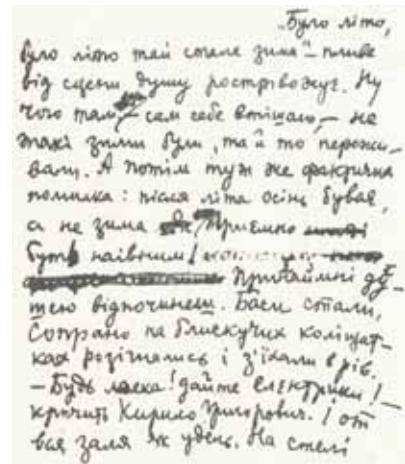 „Було літо,
було літо тай стала зима" – пливе
від сцени, душу розтрівожує. Ну
чого там, – сам себе втішаю, – не
такі зими були, та й то пережи-
вали. А потім тут же фактична
помилка: після літа осінь буває,
а не зима. Приємно
бути наівним!
Принаймні ду-
шею відпочинеш. Баси стали,
Сопрано на блискучих коліщат-
ках розігнались і з'їхали в рів.
– Будь ласка! дайте електрики! –
кричить Кирило Григорович. І от
вся заля як удень. На стелі